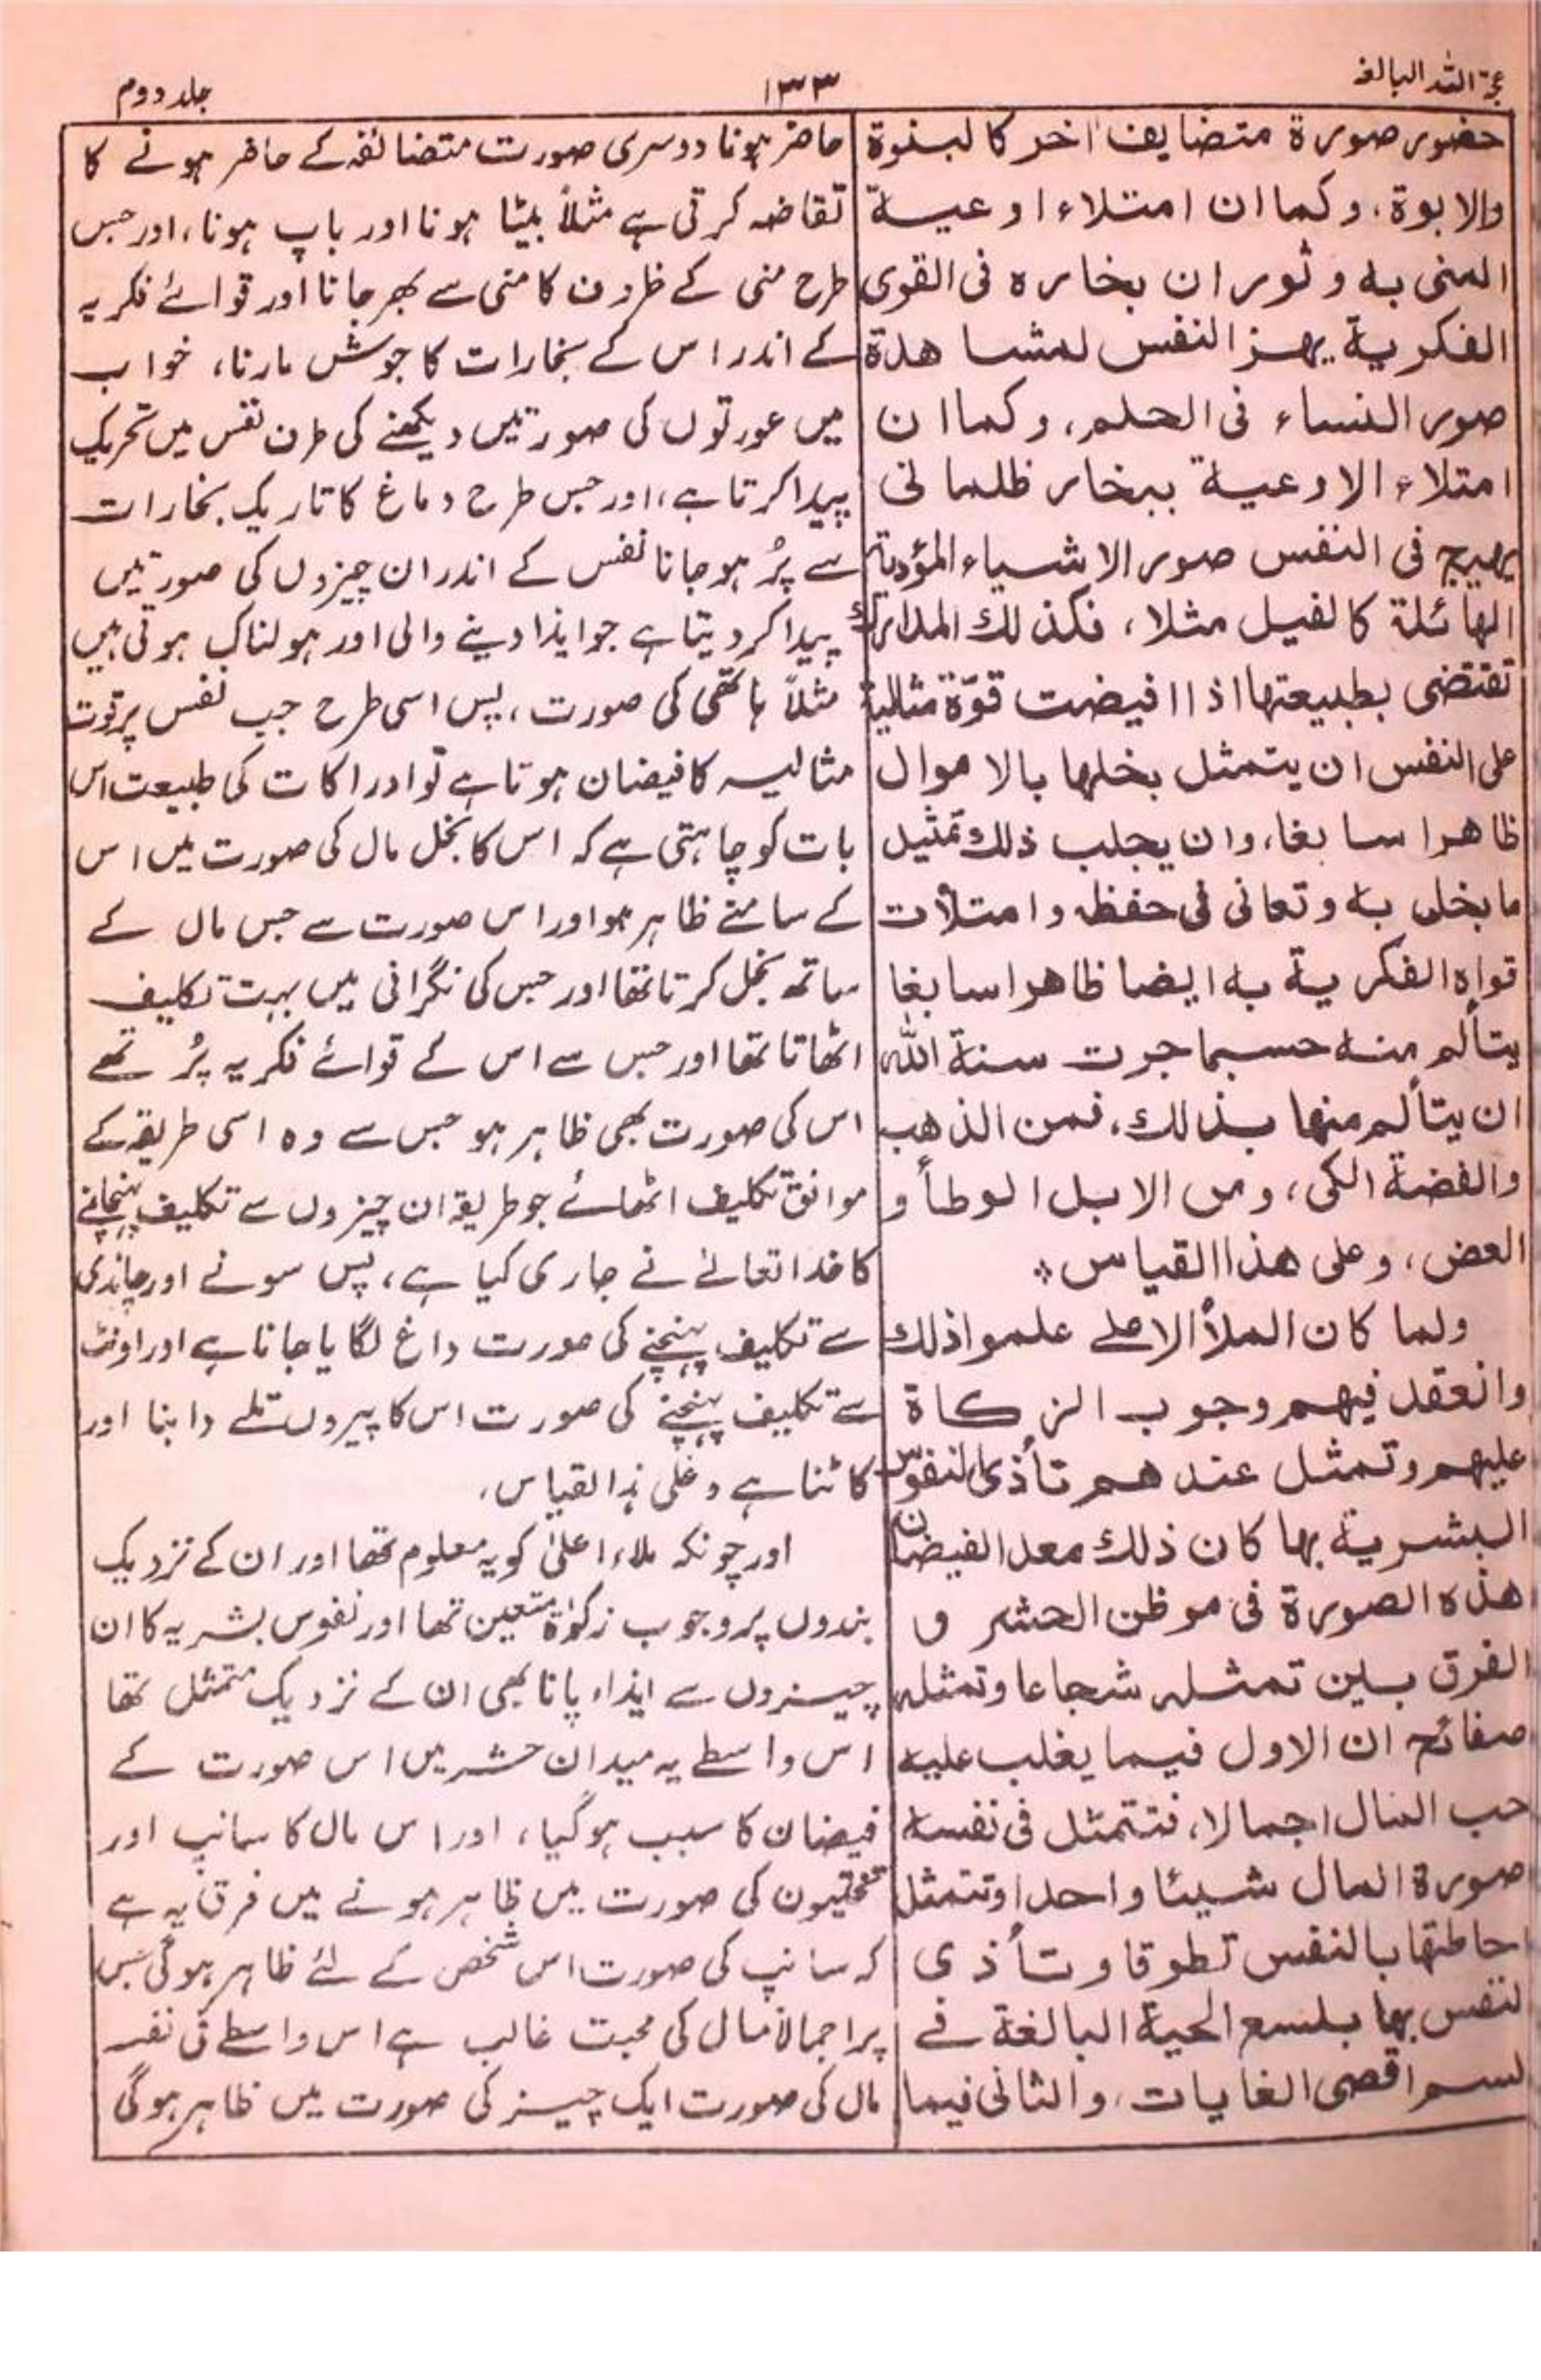 حجۃ اللہ البالغہ
۱۳۳
جلد دوم
حضور صورة متضايف اخر كالبنوة
والابوة، وكما ان امتلاء اوعية
المنى به وثوران بخاره فى القوى
الفكرية يهز النفس لمشاهدة
صور النساء فى الحلم، وكما ان
امتلاء الاوعية ببخار ظلمانى
يهيج فى النفس صور الاشياء المؤذية
الهائلة كالفيل مثلا، فكذلك المدارك
تقتضى بطبيعتها اذا افيضت قوّة مثالية
على النفس ان يتمثل بخلها بالاموال
ظاهرا سابغا، وان يجلب ذلك تمثيل
ما بخل به وتعانى فى حفظه وامتلأت
قواه الفكرية به ايضا ظاهرا سابغا
يتألم منه حسبما جرت سنة الله
ان يتألم منها بذلك، فمن الذهب
والفضة الكى، ومن الابل الوطأ و
العض، وعلى هذا القياس
ولما كان الملأ الاعلے علموا ذلك
وانعقد فيهم وجوب الزكاة
عليهم وتمثل عندهم تأذى النفوس
البشرية بها كان ذلك معد الفيضان
هذه الصورة فى موطن الحشر و
الفرق بين تمثله شجاعا وتمثله
صفائح ان الاول فيما يغلب عليه
حب المال اجمالا، فتتمثل فى نفسه
صورة المال شيئا واحدا وتتمثل
احاطتها بالنفس تطوقا وتأذى
لنفس بها بلسع الحية البالغة فے
لسم اقصى الغايات، والثانى فيما
حاضر ہونا دوسری صورت متضائفہ کے حاضر ہونے کا
تقاضہ کرتی ہے مثلاً بیٹا ہونا اور باپ ہونا، اور جس
طرح منی کے ظروف کا منی سے بھر جانا اور قوائے فکریہ
کے اندر اس کے بخارات کا جوش مارنا، خواب
میں عورتوں کی صورتیں دیکھنے کی طرف نفس میں تحریک
پیدا کرتا ہے، اور جس طرح دماغ کا تاریک بخارات
سے پُر ہو جانا نفس کے اندر ان چیزوں کی صورتیں
پیدا کر دیتا ہے جو ایذا دینے والی اور ہولناک ہوتی ہیں
مثلاً ہاتھی کی صورت، پس اسی طرح جب نفس پر قوت
مثالیہ کا فیضان ہوتا ہے تو ادراکات کی طبیعت اس
بات کو چاہتی ہے کہ اس کا بخل مال کی صورت میں اس
کے سامنے ظاہر ہو اور اس صورت سے جس مال کے
ساتھ بخل کرتا تھا اور جس کی نگرانی میں بہت تکلیف
اٹھاتا تھا اور جس سے اس کے قوائے فکریہ پُر تھے
اس کی صورت بھی ظاہر ہو جس سے وہ اسی طریقہ کے
موافق تکلیف اٹھائے جو طریقہ ان چیزوں سے تکلیف پہنچانے
کا خدا تعالےٰ نے جاری کیا ہے، پس سونے اور چاندی
سے تکلیف پہنچنے کی صورت داغ لگایا جانا ہے اور اونٹ
سے تکلیف پہنچنے کی صورت اس کا پیروں تلے دابنا اور
کاٹنا ہے وعلیٰ ہذا القیاس،
اور چونکہ ملاء اعلیٰ کو یہ معلوم تھا اور ان کے نزدیک
بندوں پر وجوب زکوٰۃ متعین تھا اور نفوس بشریہ کا ان
چیزوں سے ایذاء پانا بھی ان کے نزدیک متمثل تھا
اس واسطے یہ میدان حشر میں اس صورت کے
فیضان کا سبب ہو گیا، اور اس مال کا سانپ اور
تختیوں کی صورت میں ظاہر ہونے میں فرق یہ ہے
کہ سانپ کی صورت اس شخص کے لئے ظاہر ہوگی جس
پر اجمالاً مال کی محبت غالب ہے اس واسطے فی نفسہ
مال کی صورت ایک چیز کی صورت میں ظاہر ہوگی